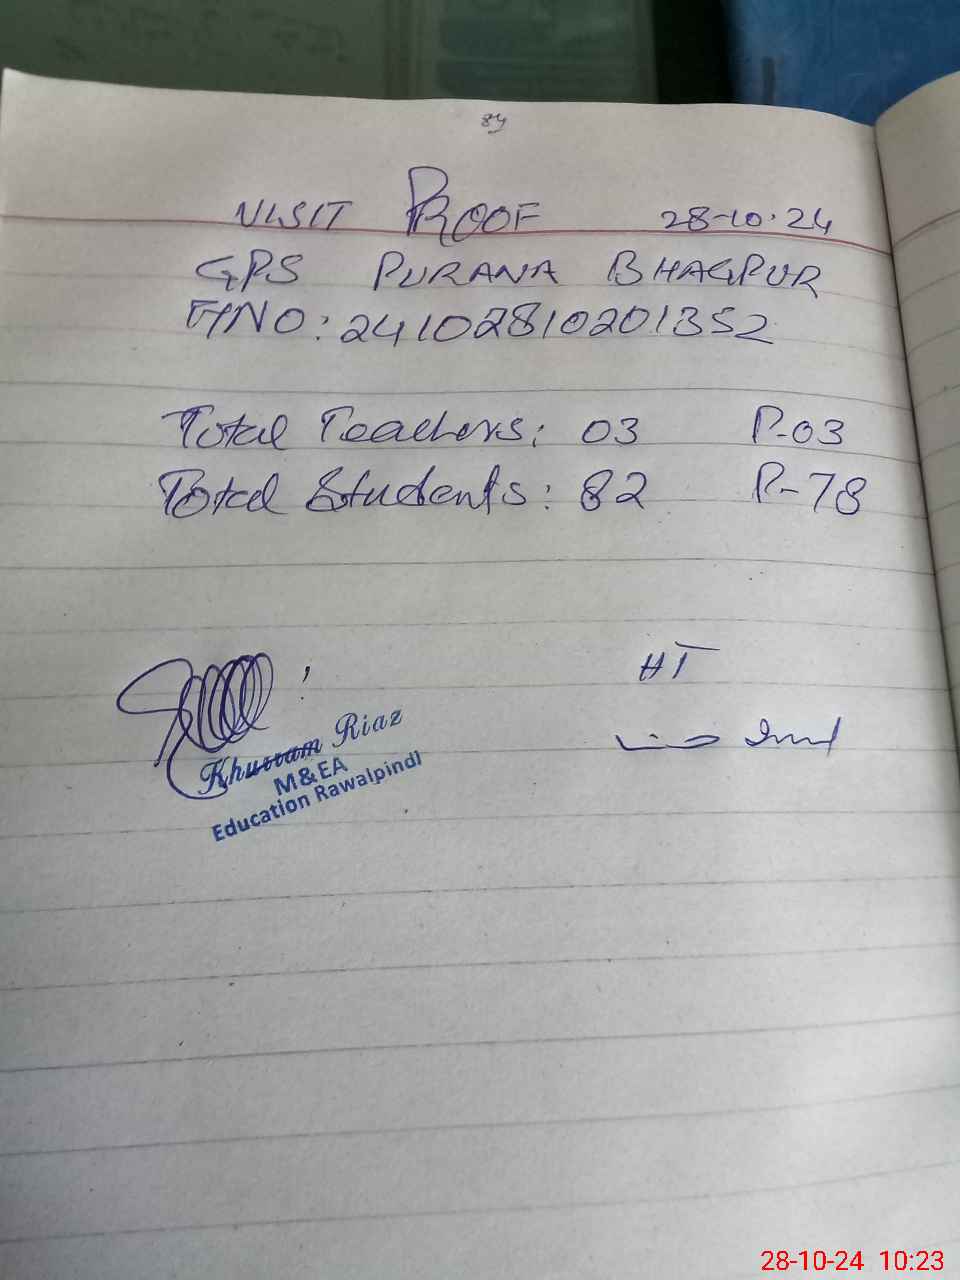 84
VISIT PROOF 28-10-24
GPS PURANA BHAGPUR
F/NO: 24102810201352
Total Teachers: 03 P-03
Total Students: 82 P-78
HT
Khurram Riaz
M&EA
Education Rawalpindi
28-10-24 10:23